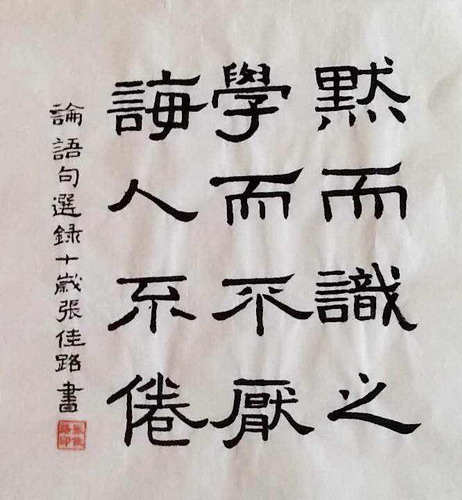 默而識之
學而不厭
誨人不倦
論語句選録十歲張佳路書
張佳路印